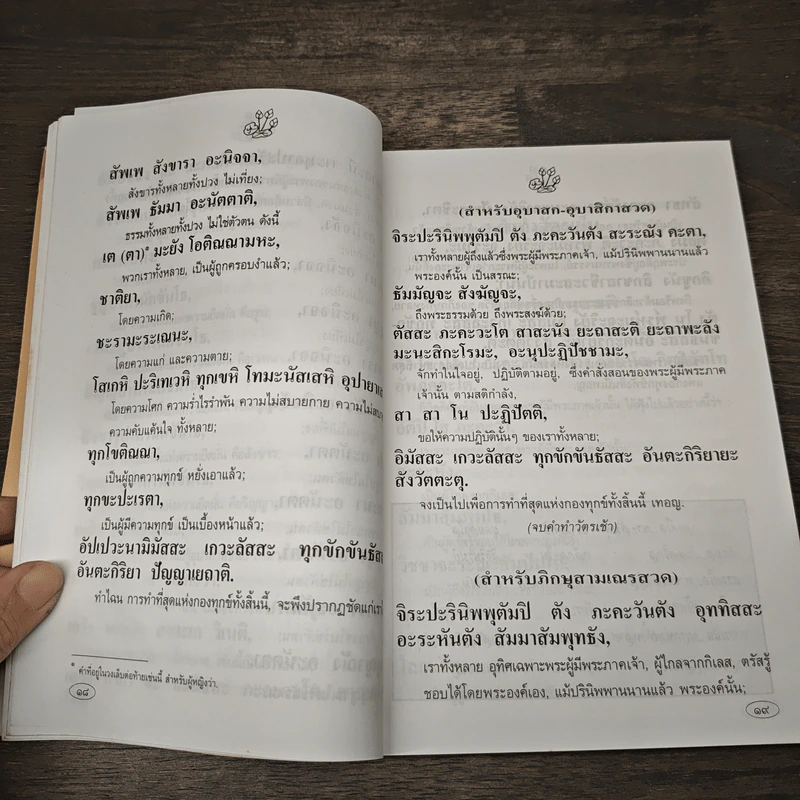 สัพเพ สังขารา อะนิจจา,
สังขารทั้งหลายทั้งปวง ไม่เที่ยง;
สัพเพ ธัมมา อะนัตตาติ,
ธรรมทั้งหลายทั้งปวง ไม่ใช่ตัวตน ดังนี้
เต (ตา)* มะยัง โอติณณามหะ,
พวกเราทั้งหลาย, เป็นผู้ถูกครอบงำแล้ว;
ชาติยา,
โดยความเกิด;
ชะรามะระเณนะ,
โดยความแก่ และความตาย;
โสเกหิ ปะริเทเวหิ ทุกเขหิ โทมะนัสเสหิ อุปายาเส
โดยความโศก ความร่ำไรรำพัน ความไม่สบายกาย ความไม่สบา
ความคับแค้นใจ ทั้งหลาย;
ทุกโขติณณา,
เป็นผู้ถูกความทุกข์ หยั่งเอาแล้ว;
ทุกขะปะเรตา,
เป็นผู้มีความทุกข์ เป็นเบื้องหน้าแล้ว;
อัปเปวะนามิมัสสะ เกวะลัสสะ ทุกขักขันธัส
อันตะกิริยา ปัญญาเยถาติ.
ทำไฉน การทำที่สุดแห่งกองทุกข์ทั้งสิ้นนี้, จะพึงปรากฏชัดแก่เรา
* คำที่อยู่ในวงเล็บต่อท้ายเช่นนี้ สำหรับผู้หญิงว่า.
๑๘
(สำหรับอุบาสก-อุบาสิกาสวด)
จิระปะรินิพพุตัมปิ ตัง ภะคะวันตัง สะระณัง คะตา,
เราทั้งหลายผู้ถึงแล้วซึ่งพระผู้มีพระภาคเจ้า, แม้ปรินิพพานนานแล้ว
พระองค์นั้น เป็นสรณะ;
ธัมมัญจะ สังฆัญจะ,
ถึงพระธรรมด้วย ถึงพระสงฆ์ด้วย;
ตัสสะ ภะคะวะโต สาสะนัง ยะถาสะติ ยะถาพะลัง
มะนะสิกะโรมะ, อะนุปะฏิปัชชามะ,
จักทำในใจอยู่, ปฏิบัติตามอยู่, ซึ่งคำสั่งสอนของพระผู้มีพระภาค
เจ้านั้น ตามสติกำลัง,
สา สา โน ปะฏิปัตติ,
ขอให้ความปฏิบัตินั้นๆ ของเราทั้งหลาย;
อิมัสสะ เกวะลัสสะ ทุกขักขันธัสสะ อันตะกิริยายะ
สังวัตตะตุ.
จงเป็นไปเพื่อการทำที่สุดแห่งกองทุกข์ทั้งสิ้นนี้ เทอญ.
(จบคำทำวัตรเช้า)
(สำหรับภิกษุสามเณรสวด)
จิระปะรินิพพุตัมปิ ตัง ภะคะวันตัง อุททิสสะ
อะระหันตัง สัมมาสัมพุทธัง,
เราทั้งหลาย อุทิศเฉพาะพระผู้มีพระภาคเจ้า, ผู้ไกลจากกิเลส, ตรัสรู้
ชอบได้โดยพระองค์เอง, แม้ปรินิพพานนานแล้ว พระองค์นั้น;
๑๙